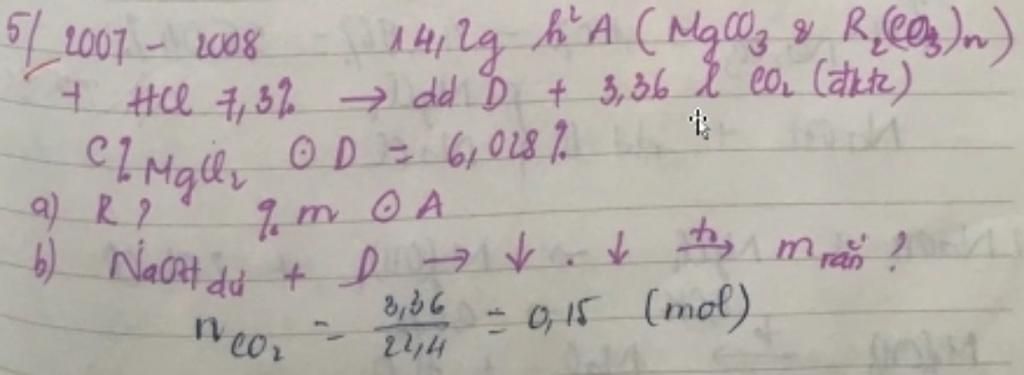 5/ 2007 - 2008 14,2g h² A (MgCO₃ & R₂(CO₃)n)
+ HCl 7,3% → dd D + 3,36 l CO₂ (đktc)
C% MgCl₂ ⊙ D = 6,028%
a) R? % m ⊙ A
b) NaOH dư + D → ↓ . ↓ t° → m rắn ?
n CO₂ = 3,36 / 22,4 = 0,15 (mol)